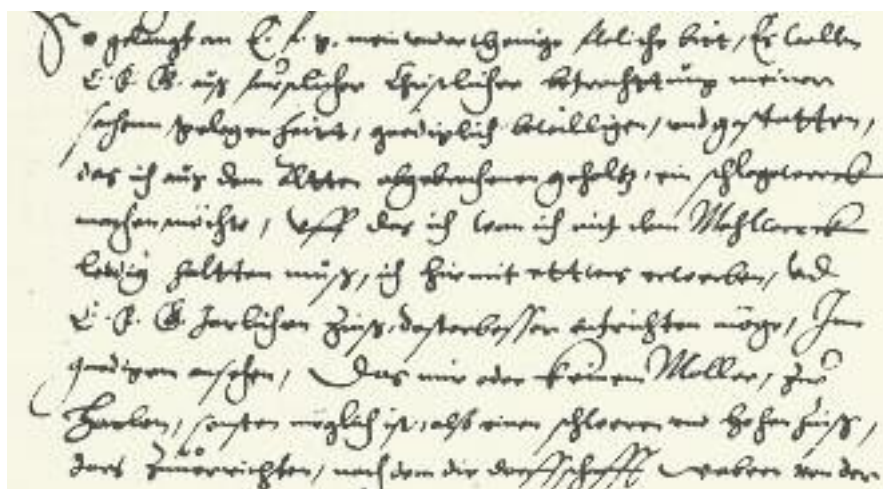 So gelangt an E. f. g. mein underthenige fleliche bitt, Es wollen
E. F. G. auß fürstlicher Christlicher betrachtung meiner
sachenn gelegenheitt, gnediglich bewilligen, und gestatten,
das ich auß dem Altten abgebrochenen geholtz, ein schlagewerck
machen möchte, Uff das ich wan ich mit dem Mahlwerck
ledig haltten muß, ich hirmit ettwas erwerben, und
E. F. G. Jarlichen Zinß, desterbesser entrichten möge, Im
gnedigen ansehen, Das mir oder keinem Moller, zu
Harlen, sonsten möglich ist, alß einen schweren und hohen Zinß,
nach dem die dorffschafft von der